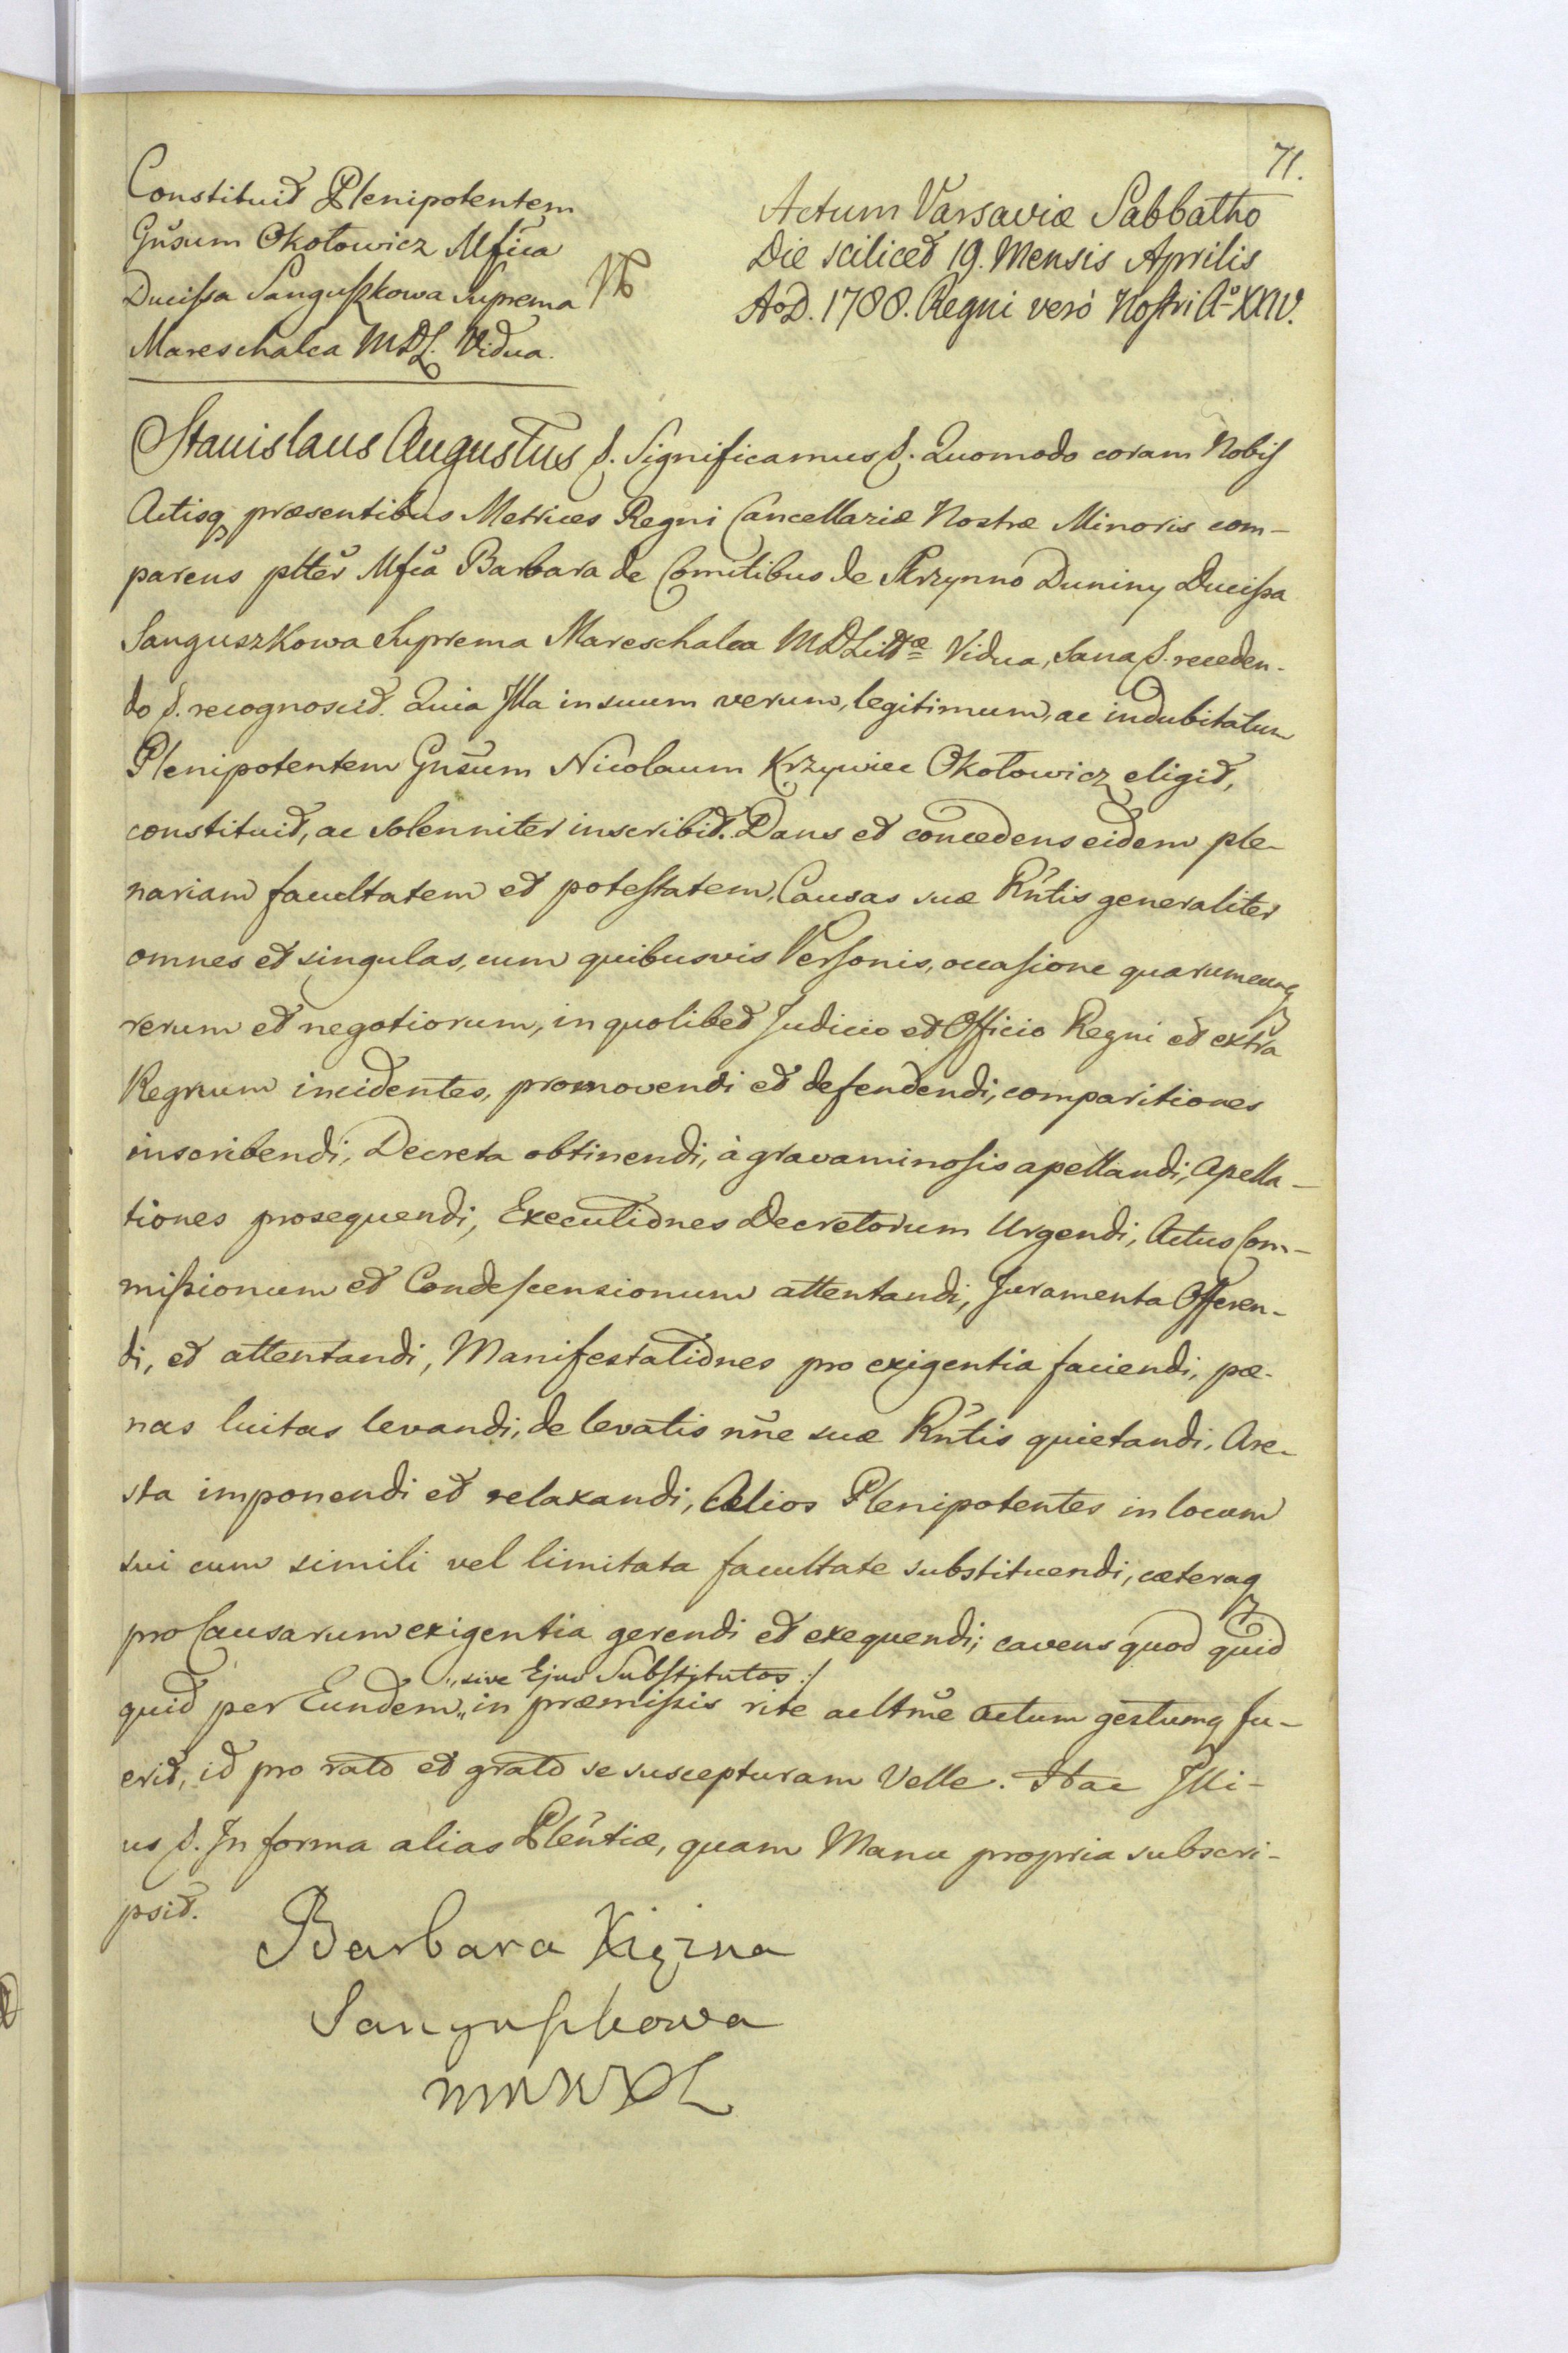 71.
Constituit Plenipotentem
Gnsum Okołowicz Mfica
Ducißa Sangußkowa Suprema
Mareschalca MDL. Vidua.
Actum Varsaviæ Sabbatho
Die scilicet 19. Mensis Aprilis
AoD. 1788. Regni verò Nostri Ao XXIV.
Stanislaus Augustus S. Significamus S. Quomodo coram Nobis
Actisq præsentibus Metrices Regni Cancellariæ Nostræ Minoris com-
parens pltter Mfca Barbara de Comitibus de Skrzynno Duniny Ducißa
Sanguszkowa Suprema Mareschalca MDLittæ Vidua, Sana S. receden-
do S. recognoscit. Quia Illa in suum verum, legitimum, ac indubitatum
Plenipotentem Gnsum Nicolaum Krzywiec Okołowicz eligit,
constituit, ac solenniter inscribit. Dans et concedens eidem ple-
nariam facultatem et potestatem, Causas suæ Rntis generaliter
omnes et singulas, cum quibusvis Personis, occasione quarumcunq
rerum et negotiorum, in quolibet Judicio et Officio Regni et extra
Regnum incidentes, promovendi et defendendi, comparitiones
inscribendi, Decreta obtinendi, à gravaminosis apellandi, Apella-
tiones prosequendi, Executiones Decretorum Urgendi, Actus Com-
mißionum et Condescensionum attentandi, Juramenta Offeren-
di, et attentandi, Manifestationes pro exigentia faciendi, pæ-
nas luitas levandi, de levatis nne suæ Rntis quietandi, Are-
sta imponendi et relaxandi, Alios Plenipotentes in locum
sui cum simili vel limitata facultate substituendi, cæteraq
pro Causarum exigentia gerendi et exequendi; cavens quod quid
„sive Ejus Substytutos :/
quid per Eundem „ in præmißis rite acltme actum gestumq fu-
erit, id pro rato et grato se suscepturam Velle. Hac Illi-
us S. In forma alias Plentiæ, quam Manu propria subscri-
psit.
Barbara Xiężna
Sangußkowa
MWWXL